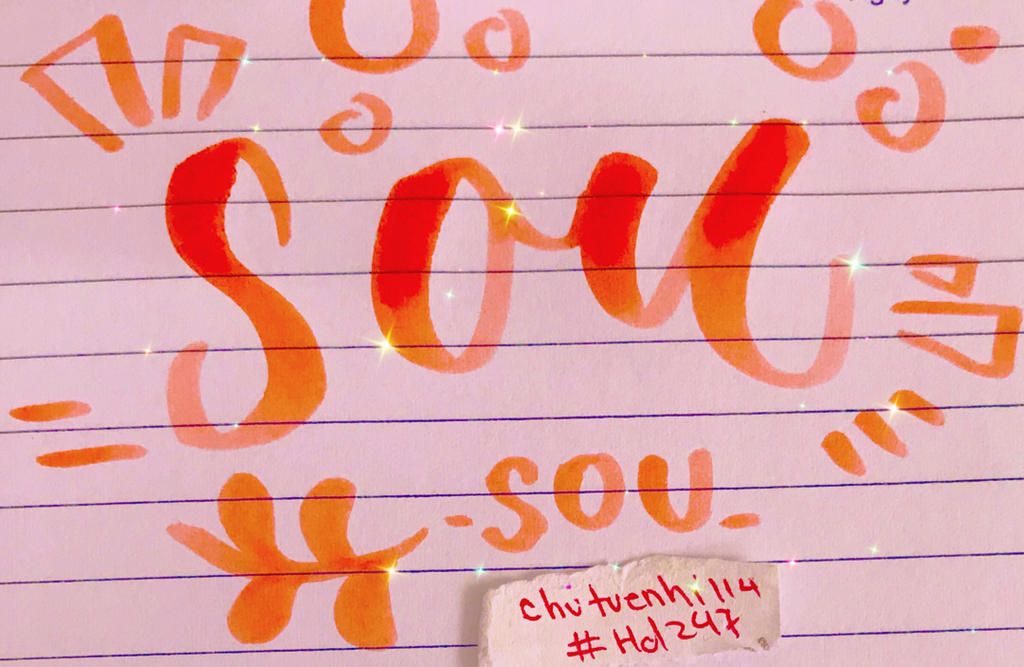 sou
-SOU-
chutuenhi114
#Hd247